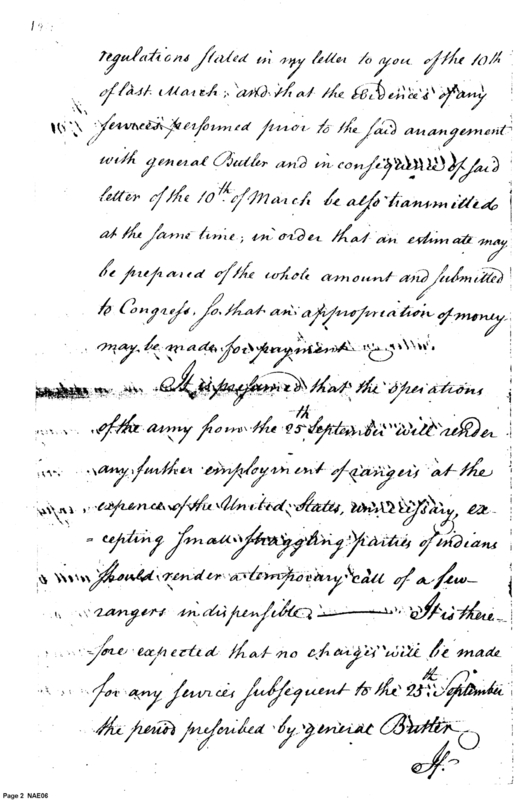 regulations stated in my letter to you of the 10th
of last March; and that the evidences of any
services performed prior to the said arrangement
with general Butler and in consequence of said
letter of the 10th of March be also transmitted
at the same time; in order that an estimate may
be prepared of the whole amount and submitted
to Congress, so that an appropriation of money
may be made for payment.
It is presumed that the operations
of the army from the 25th September will render
any further employment of rangers at the
expence of the United States, unnecessary, ex-
-cepting small straggling parties of indians
should render a temporary call of a few
rangers indispensible. It is there-
fore expected that no charges will be made
for any services subsequent to the 25th September
the period prescribed by general Butler
If.
Page 2 NAE06